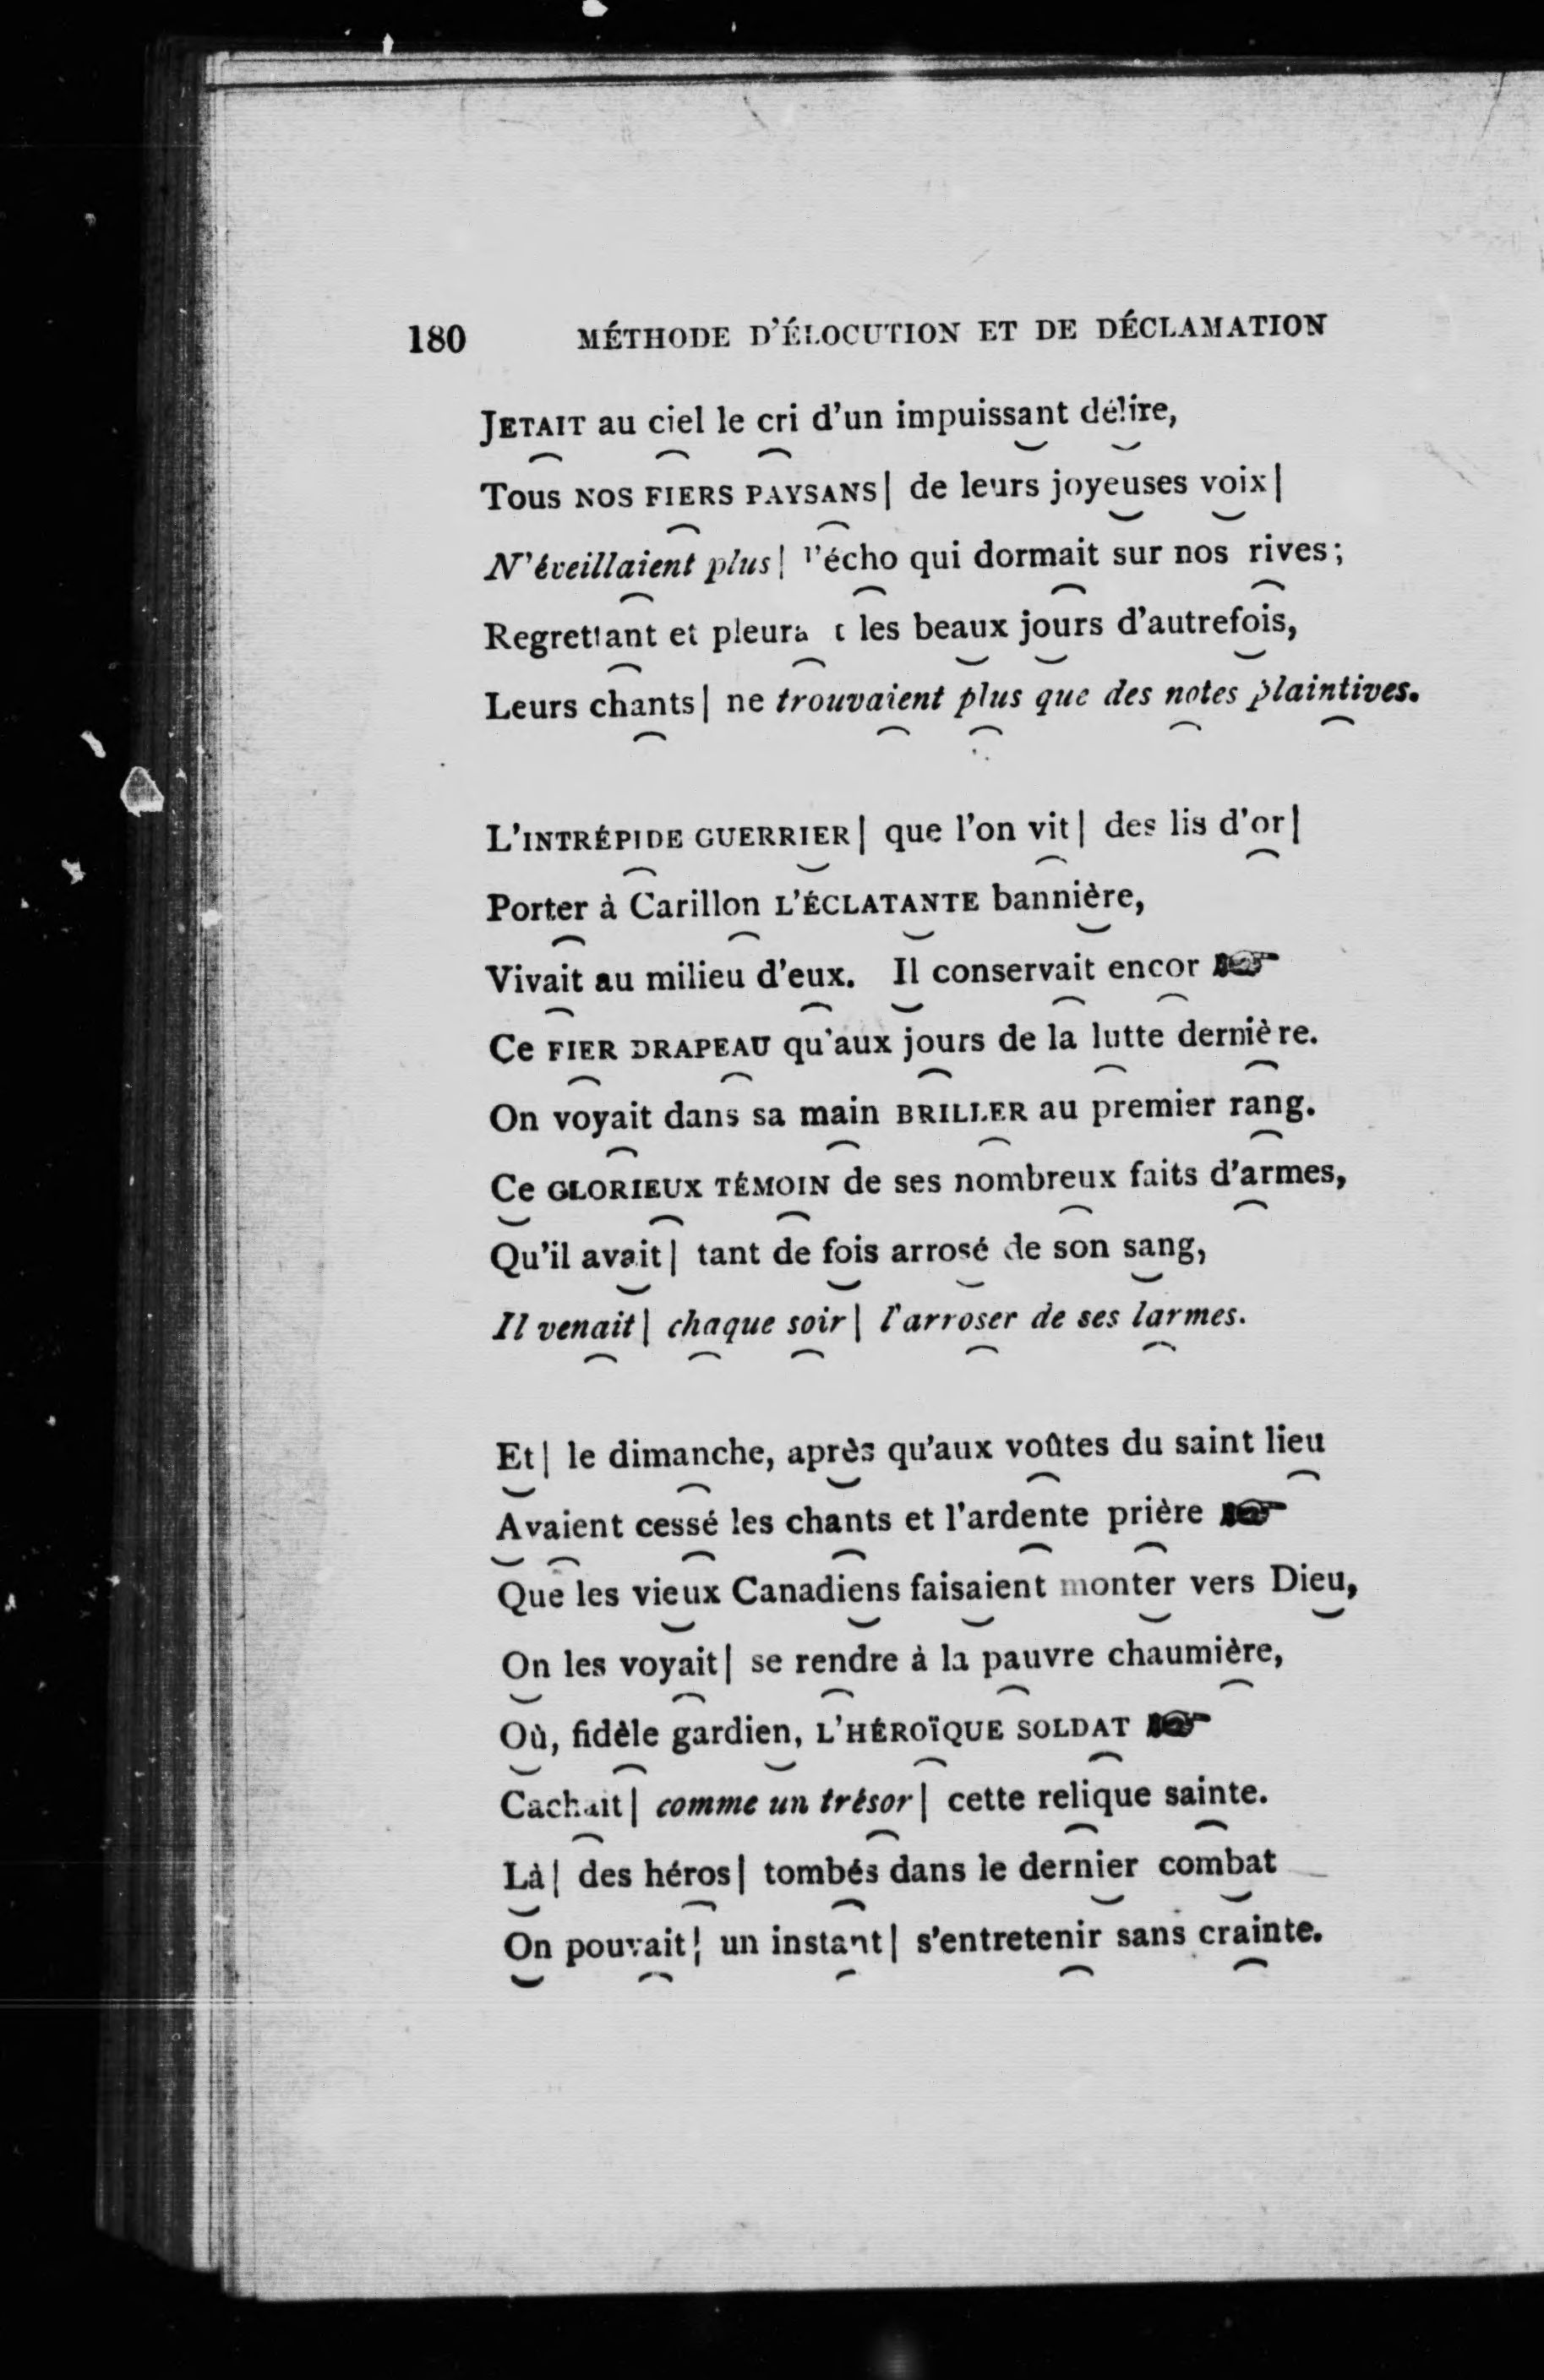 180 MÉTHODE D'ÉLOCUTION ET DE DÉCLAMATION
JETAIT au ciel le cri d'un impuissant délire,
Tous NOS FIERS PAYSANS| de leurs joyeuses voix|
N'éveillaient plus| l'écho qui dormait sur nos rives;
Regrettant et pleura t les beaux jours d'autrefois,
Leurs chants| ne trouvaient plus que des notes plaintives.
L'INTRÉPIDE GUERRIER| que l'on vit| des lis d'or|
Porter à Carillon L'ÉCLATANTE bannière,
Vivait au milieu d'eux. Il conservait encor ☛
Ce FIER DRAPEAU qu'aux jours de la lutte dernière.
On voyait dans sa main BRILLER au premier rang.
Ce GLORIEUX TÉMOIN de ses nombreux faits d'armes,
Qu'il avait| tant de fois arrosé de son sang,
Il venait| chaque soir| l'arroser de ses larmes.
Et| le dimanche, après qu'aux voûtes du saint lieu
Avaient cessé les chants et l'ardente prière ☛
Que les vieux Canadiens faisaient monter vers Dieu,
On les voyait| se rendre à la pauvre chaumière,
Où, fidèle gardien, L'HÉROÏQUE SOLDAT ☛
Cachait| comme un trésor| cette relique sainte.
Là| des héros| tombés dans le dernier combat
On pouvait| un instant| s'entretenir sans crainte.